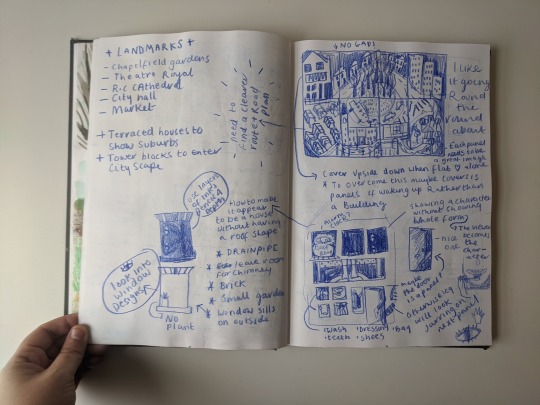 + LANDMARKS +
- Chapelfield gardens
- Theatre Royal
- R.C Cathedral
- City hall
- Market
+ Terraced houses to
show Suburbs
+ Tower blocks to enter
City Scape
Need to
find a clearer
route + Road
plan
use layers
look into
window
Designs
NO
plant
How to make
it appear
to be a house
without having
a roof shape
* DRAINPIPE
* leave room
for chimney
* Brick
* Small garden
* Window sills
on outside
↓ NO GAP!
I like
it going
Round
the
round
about
Each panel
needs to be
a great image
alone
Cover upside down when flat
* To overcome this maybe cover is
panels of waking up Rather than
a Building
showing a character
without showing
whole form
The viewer
becomes
the char-
acter
- nice
one
maybe
the door
is a flap?
Otherwise
will look
jarring on
next panel
· WASH · Dressing · Bag
· teeth · shoes